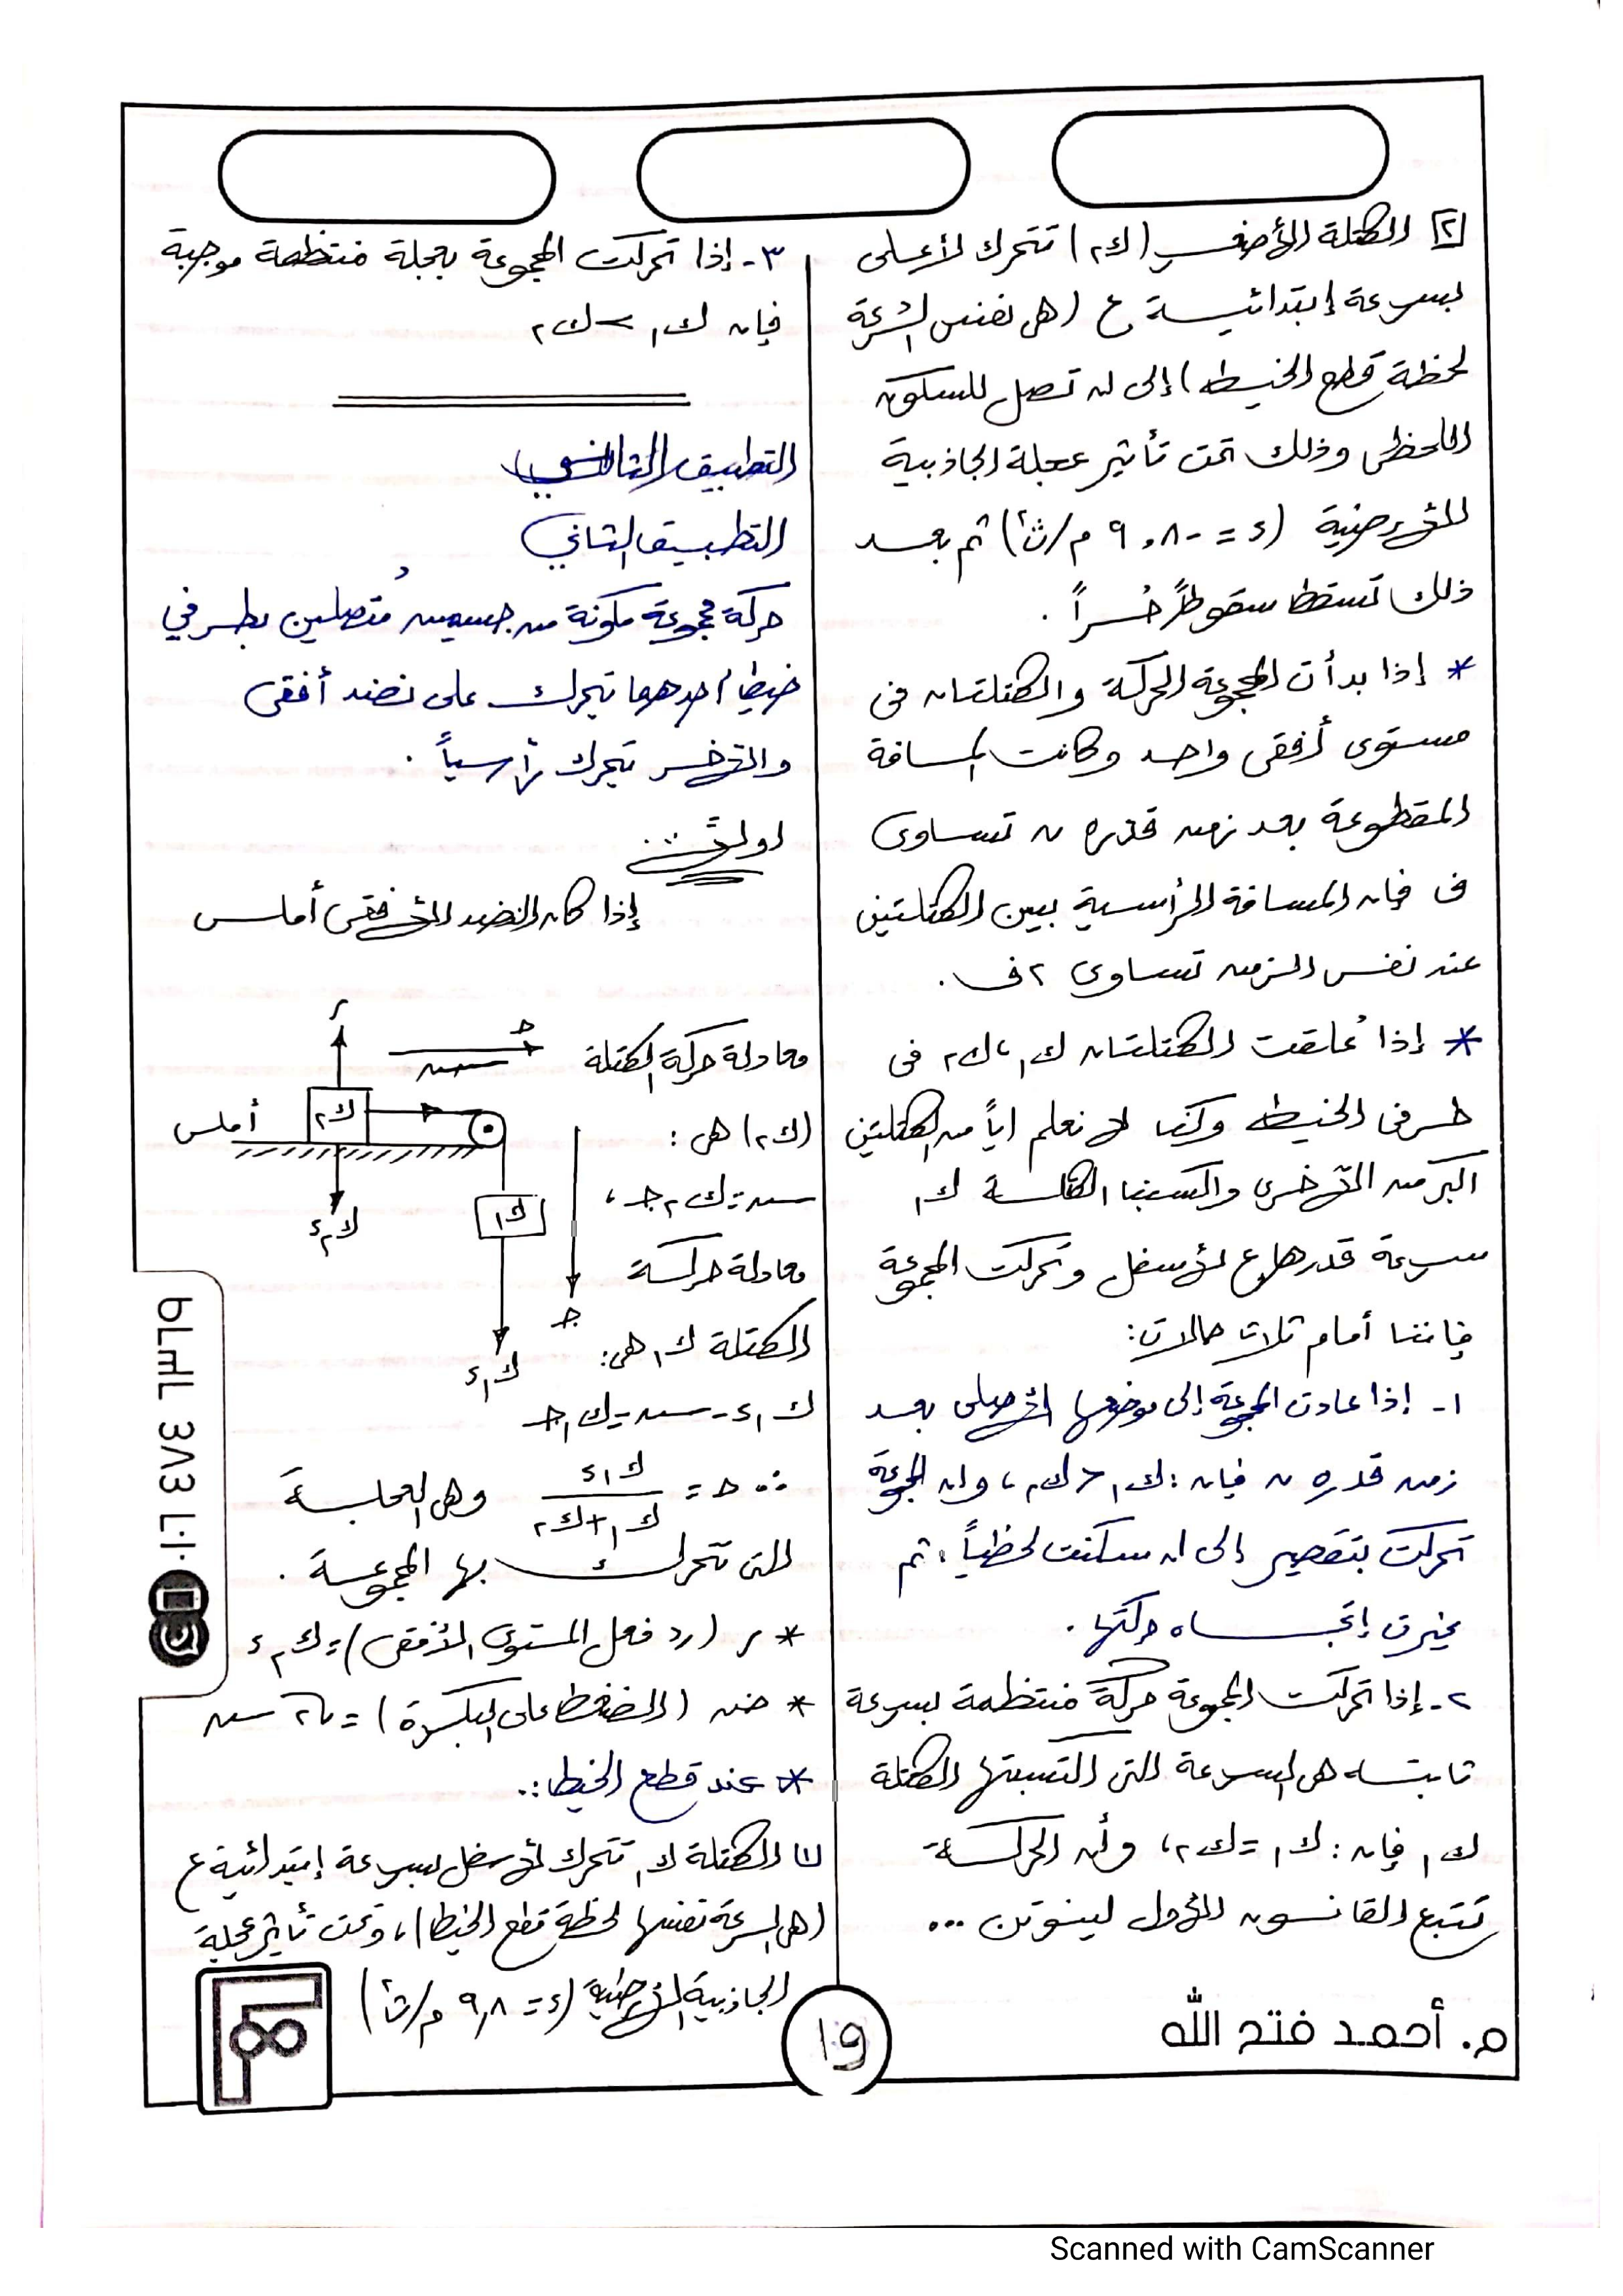 [٢] الكتلة الأصغر (ك٢) تتحرك لأعلى
بسرعة إبتدائية ع (هى نفس السرعة
لحظة قطع الخيط) إلى أن تصل للسكون
اللحظى وذلك تحت تأثير عجلة الجاذبية
الأرضية (ء = -٩,٨ م/ث٢) ثم بعد
ذلك تسقط سقوطاً حُراً .
* إذا بدأت المجموعة الحركة والكتلتان فى
مستوى أفقى واحد وكانت المسافة
المقطوعة بعد زمن قدره ن تساوى
ف فإن المسافة الرأسية بين الكتلتين
عند نفس الزمن تساوى ٢ف .
* إذا عُلقت الكتلتان ك١، ك٢ فى
طرفى الخيط وكنا لا نعلم اياً من الكتلتين
اكبر من الأخرى واكسبنا الكتلة ك١
سرعة قدرها ع لأسفل وتحركت المجموعة
فإننا أمام ثلاث حالات:
١- إذا عادت المجموعة إلى موضعها الأصلى بعد
زمن قدره ن فإن : ك١ < ك٢، وأن المجموعة
تحركت بتقصير إلى أن سكنت لحظياً، ثم
يغيرت إتجاه حركتها .
٢- إذا تحركت المجموعة حركة منتظمة بسرعة
ثابته هى السرعة التى اكتسبتها الكتلة
ك١ فإن : ك١ = ك٢، وأن الحركة
تتبع القانون الأول لنيوتن ...
٣- إذا تحركت المجموعة بعجلة منتظمة موجبة
فإن ك١ > ك٢
التطبيق الثانى
التطبيق الثاني
حركة مجموعة مكونة من جسيمين مُتصلين بطرفي
خيط احدهما يتحرك على نضد أفقى
والآخر يتحرك رأسياً .
اولاً :
إذا كان النضد الأفقى أملس
معادلة حركة الكتلة
(ك٢) هى :
شـ = ك٢ جـ ،
معادلة حركة
الكتلة ك١ هى:
ك١ء - شـ = ك١ جـ
∴ جـ = ك١ء / ك١ + ك٢ وهى العجلة
التى تتحرك بها المجموعة .
* ر (رد فعل المستوى الأفقى) = ك٢ء
* ضـ (الضغط على البكرة) = √٢ شـ
* عند قطع الخيط :.
[١] الكتلة ك١ تتحرك لأسفل بسرعة إبتدائية ع
(هى السرعة نفسها لحظة قطع الخيط)، وتحت تأثير عجلة
الجاذبية الأرضية (ء = ٩,٨ م/ث٢)
ر
جـ
شـ
ك٢
أملس
ك٢ء
ك١
جـ
ك١ء
١٩
م. أحمد فتح الله
Scanned with CamScanner